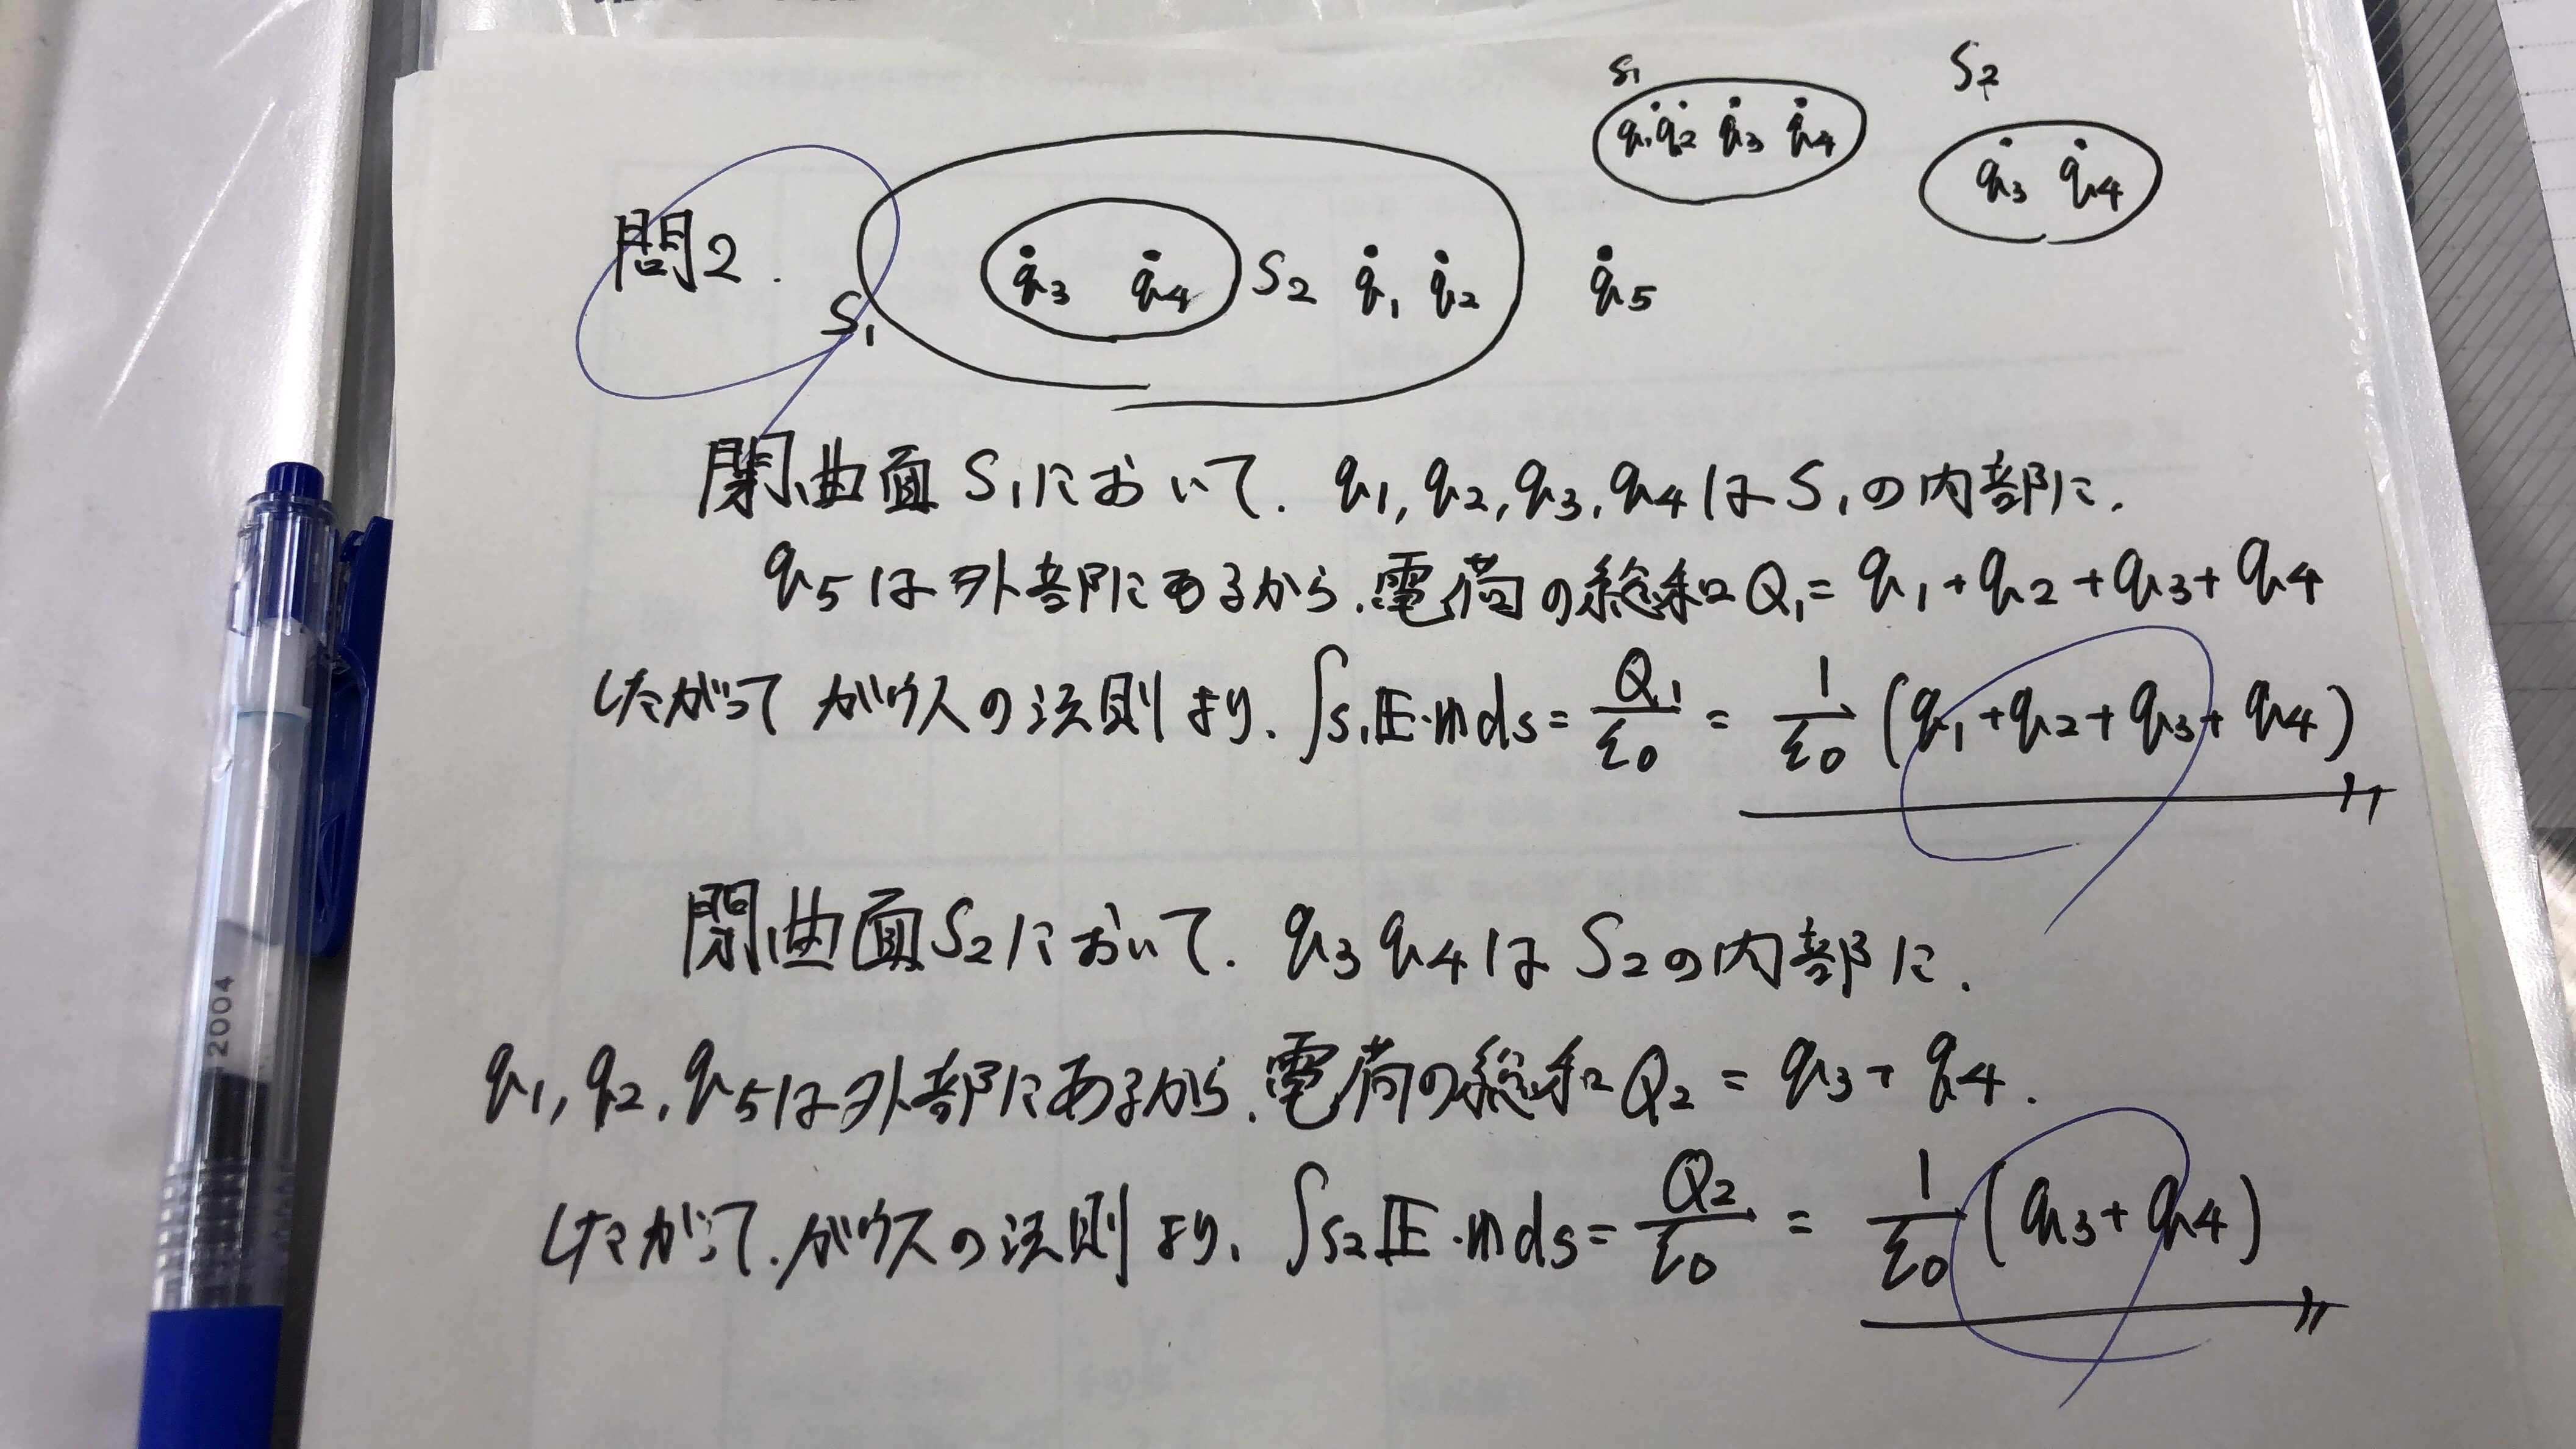 S₁
S₂
q₁ q₂ q₃ q₄
q₃ q₄
問2.
S₁
q₃ q₄ S₂ q₁ q₂ q₅
閉曲面S₁において. q₁, q₂, q₃, q₄はS₁の内部に.
q₅は外部にあるから. 電荷の総和Q₁= q₁+q₂+q₃+q₄
したがって ガウスの法則より. ∫s₁ 𝔼・𝕟ds = Q₁/ε₀ = 1/ε₀ (q₁+q₂+q₃+q₄)
閉曲面S₂において. q₃ q₄はS₂の内部に.
q₁, q₂, q₅は外部にあるから. 電荷の総和Q₂ = q₃+q₄.
したがって. ガウスの法則より. ∫s₂ 𝔼・𝕟ds = Q₂/ε₀ = 1/ε₀ (q₃+q₄)
2004